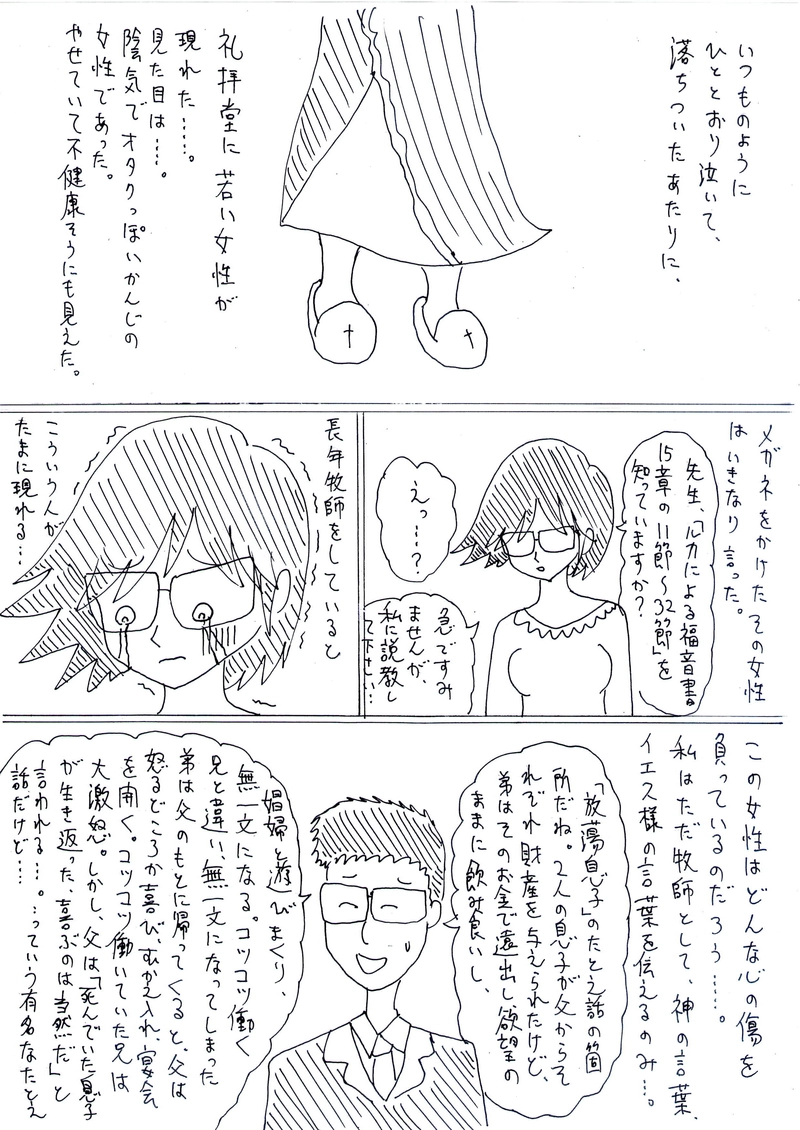 いつものように
ひととおり泣いて、
落ちついたあたりに、
礼拝堂に若い女性が
現れた……。
見た目は……。
陰気でオタクっぽいかんじの
女性であった。
やせていて不健康そうにも見えた。
メガネをかけたその女性
はいきなり言った。
先生、「ルカによる福音書
15章の11節～32節」を
知っていますか？
えっ…？
急ですみ
ませんが、
私に説教し
て下さい…
長年牧師をしていると
こういう人が
たまに現れる…
この女性はどんな心の傷を
負っているのだろう……。
私はただ牧師として、神の言葉、
イエス様の言葉を伝えるのみ…。
「放蕩息子」のたとえ話の箇
所だね。2人の息子が父からそ
れぞれ財産を与えられたけど、
弟はそのお金で遠出し、欲望の
ままに飲み食いし、
娼婦と遊びまくり、
無一文になる。コツコツ働く
兄と違い、無一文になってしまった
弟は父のもとに帰ってくると、父は
怒るどころか喜び、むかえ入れ、宴会
を開く。コツコツ働いていた兄は
大激怒。しかし、父は「死んでいた息子
が生き返った、喜ぶのは当然だ」と
言われる…。…っていう有名なたとえ
話だけど…